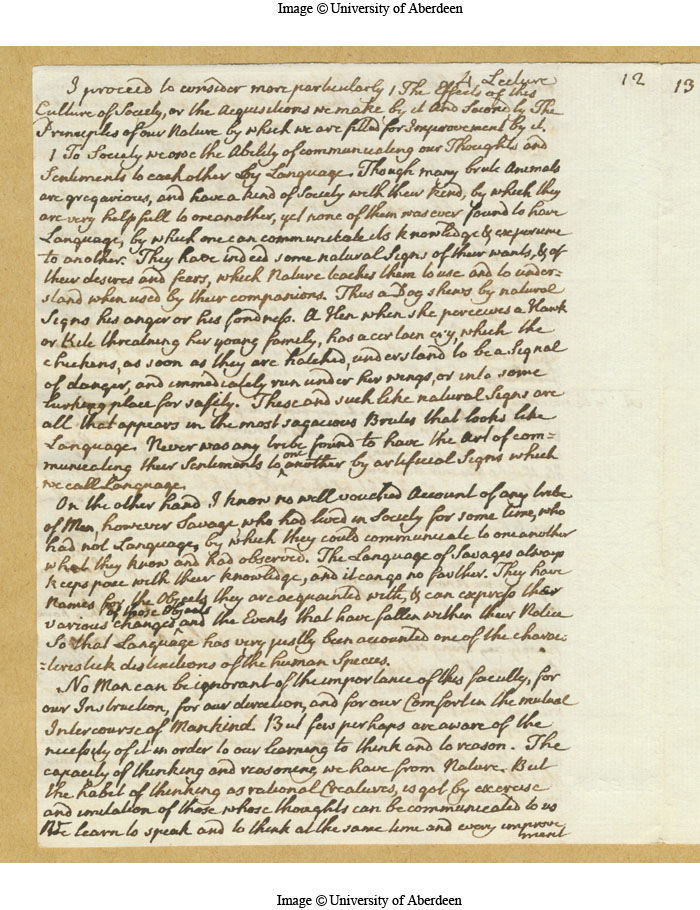 Image © University of Aberdeen
4 Lecture
12
13
I proceed to consider more particularly 1 The Effects of this
Culture of Society, or the Acquisitions we make by it And Secondly The
Principles of our Nature by which we are fitted for Improvement by it.
1 To Society we owe the Ability of communicating our Thoughts and
Sentiments to each other by Language. Though many brute Animals
are gregarious, and have a kind of Society with their kind, by which they
are very helpfull to one another, yet none of them was ever found to have
Language, by which one can communicate its knowledge & experience
to another. They have indeed some natural Signs of their wants, & of
their desires and fears, which Nature teaches them to use and to under=
stand when used by their companions. Thus a Dog shews by natural
Signs his anger or his fondness. A Hen when she perceives a Hawk
or Kite threatning her young family, has a certain cry, which the
chickens, as soon as they are hatched, understand to be a Signal
of danger, and immediately run under her wings, or into some
lurking place for safety. These and such like natural Signs are
all that appears in the most sagacious Brutes that looks like
Language. Never was any tribe found to have the Art of com=
municating their Sentiments to one another by artificial Signs which
we call Language.
On the other hand I know no well vouched Account of any tribe
of Men, however Savage who had lived in Society for some time, who
had not Language, by which they could communicate to one another
what they knew and had observed. The Language of Savages always
keeps pace with their knowledge, and it can go no farther. They have
Names for the Objects they are acquainted with, & can express the
various changes of those Objects and the Events that have fallen within their Notice
So that Language has very justly been accounted one of the charac=
=teristick distinctions of the human Species.
No Man can be ignorant of the importance of this faculty, for
our Instruction, for our direction, and for our Comfort in the mutual
Intercourse of Mankind. But few perhaps are aware of the
necessity of it in order to our learning to think and to reason. The
capacity of thinking and reasoning we have from Nature. But
the habit of thinking as rational Creatures, is got by exercise
and imitation of those whose thoughts can be communicated to us
We learn to speak and to think at the same time and every improve
ment
Image © University of Aberdeen